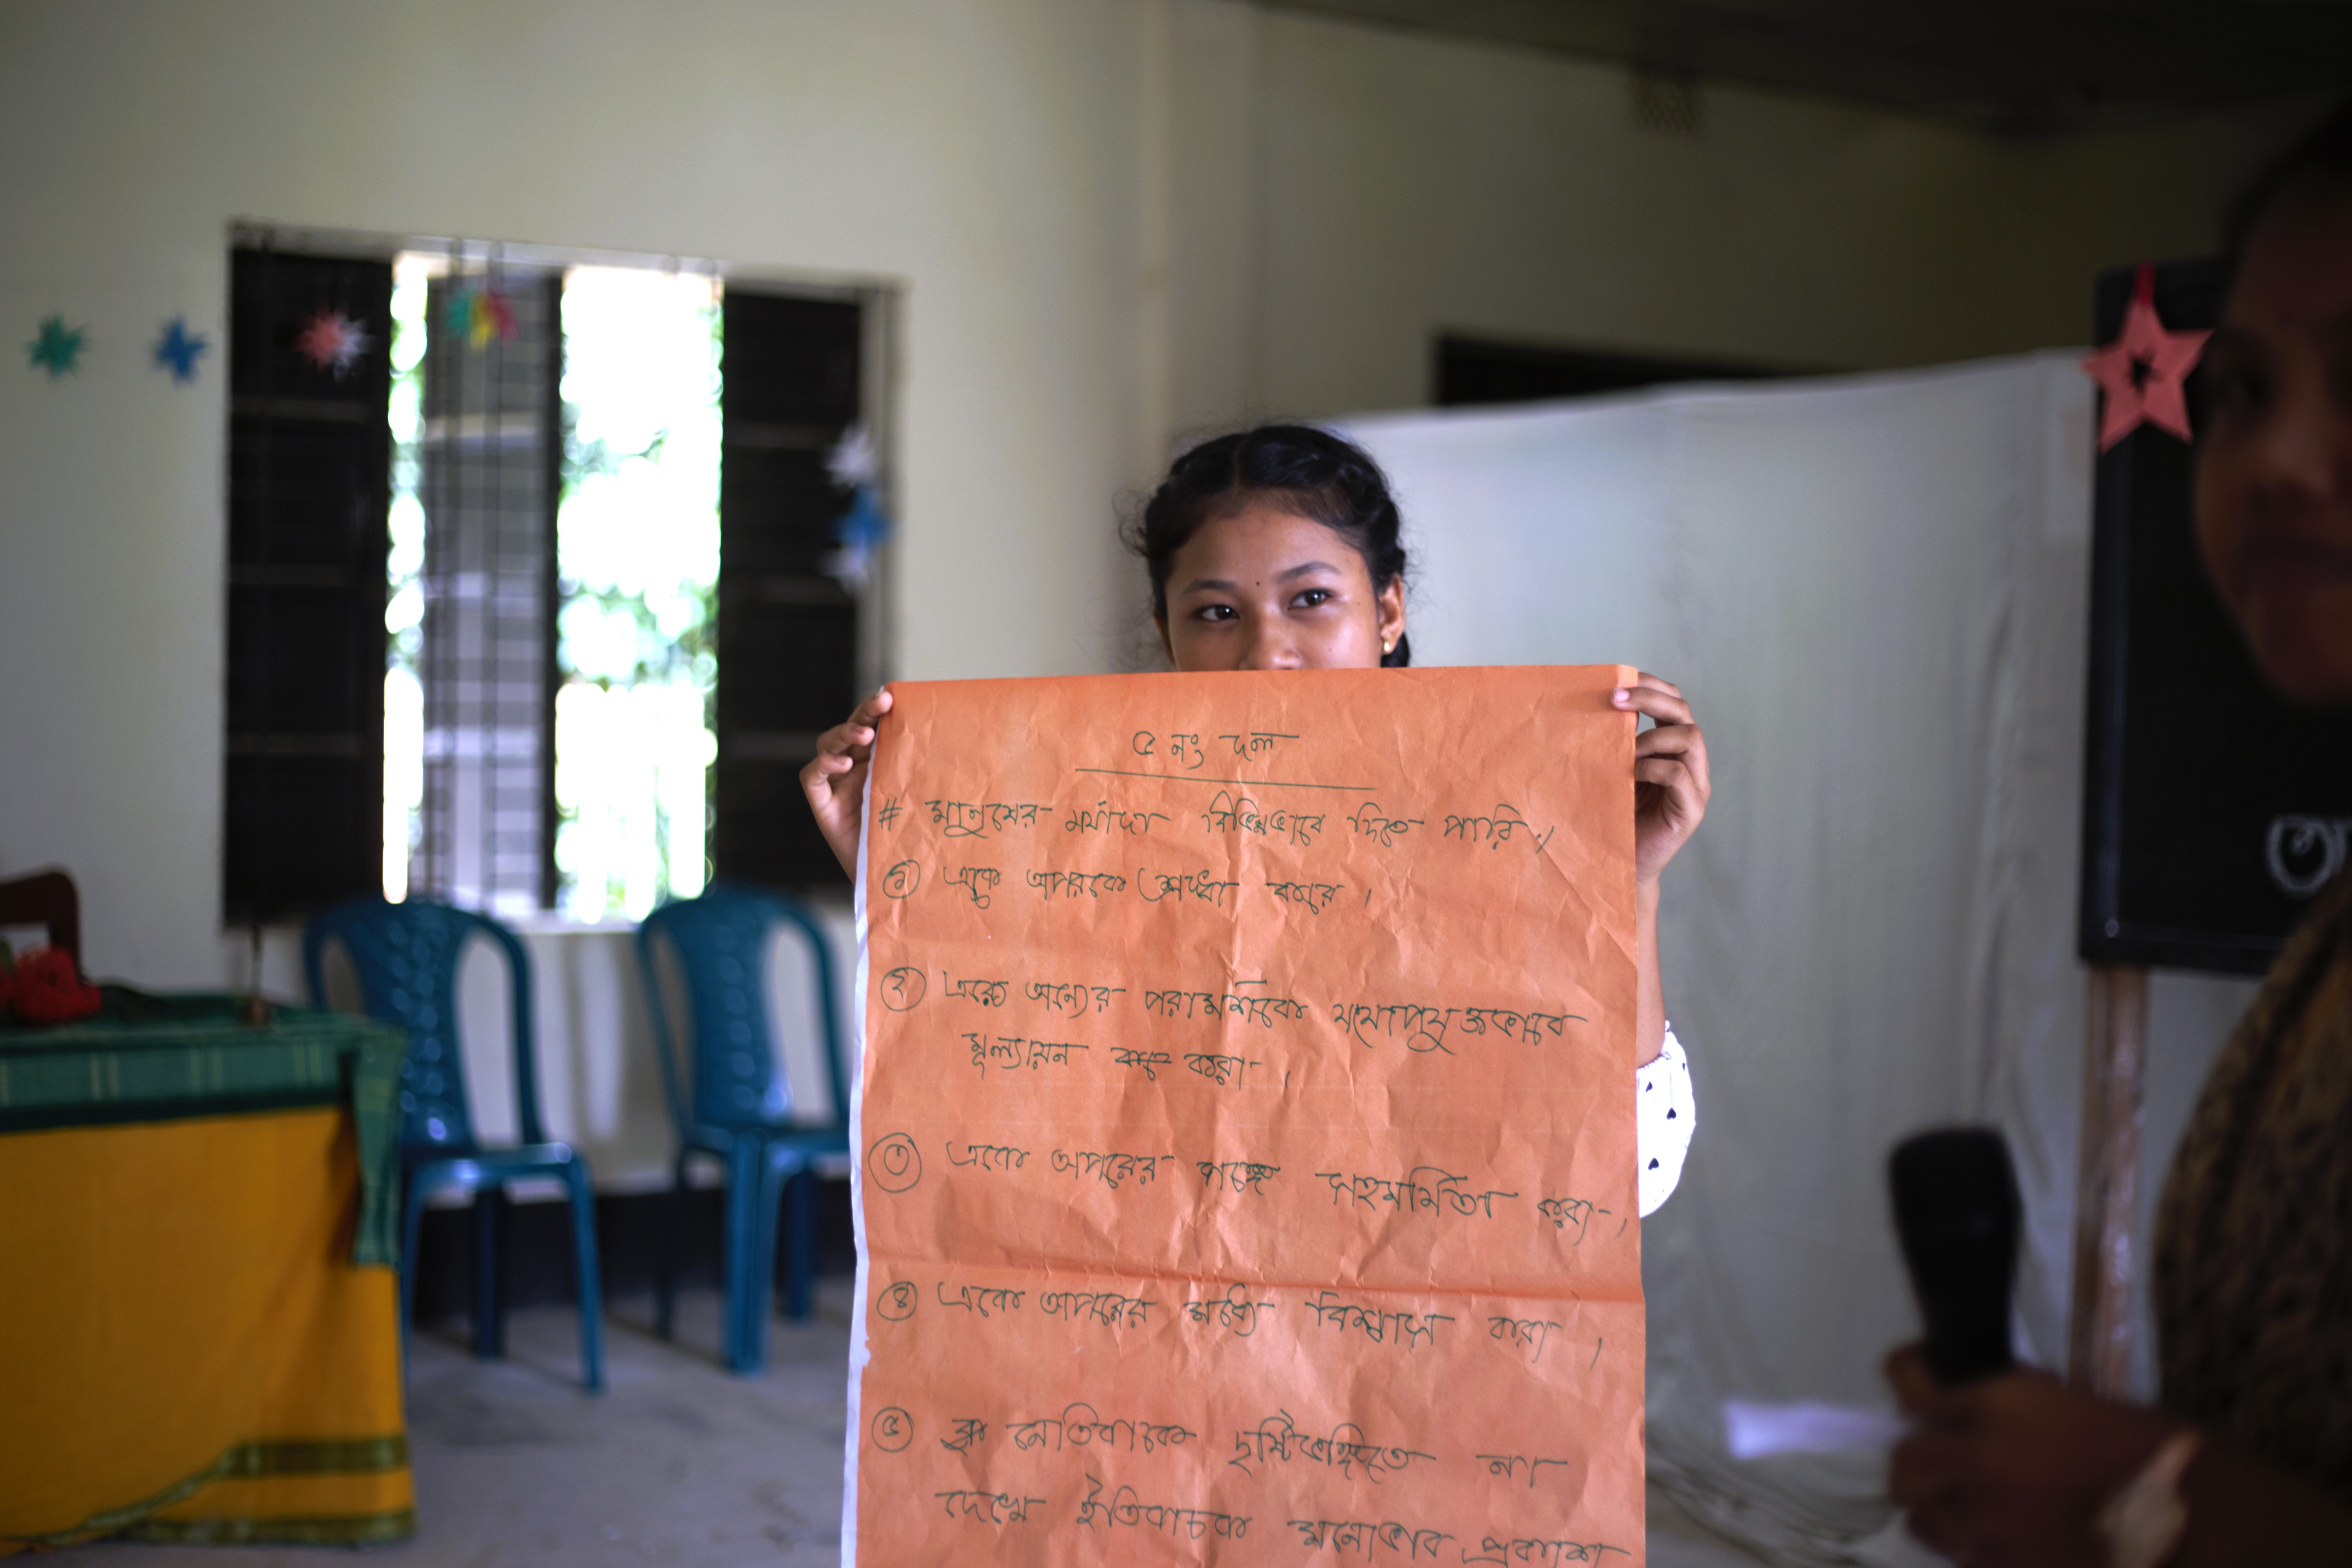 ৫ নং দল
# মানুষের মর্যাদা বিভিন্নভাবে দিতে পারি।
১ একে অপরকে শ্রদ্ধা করে।
২ একে অন্যের পরামর্শকে যথোপযুক্তভাবে
মূল্যায়ন করা।
৩ একে অপরের সঙ্গে সহমর্মিতা করা।
৪ একে অপরের মধ্যে বিশ্বাস করা।
৫ নেতিবাচক দৃষ্টিভঙ্গিতে না
দেখে ইতিবাচক মনোভাব প্রকাশ